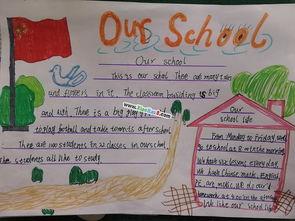 Our School
Our school
This is our school. There are many trees
and flowers in it. The classroom building is big
and with. There is a big play
to play football and take after school
There are students in 22 classes in our school.
The students all like to study.
Our
school life
From Monday to Friday, we
go to school at 8 in the morning
We have six lessons every day.
We have Chinese, math, English,
PE, art, music. We do our
homework at 4:00 in the
We like our school life